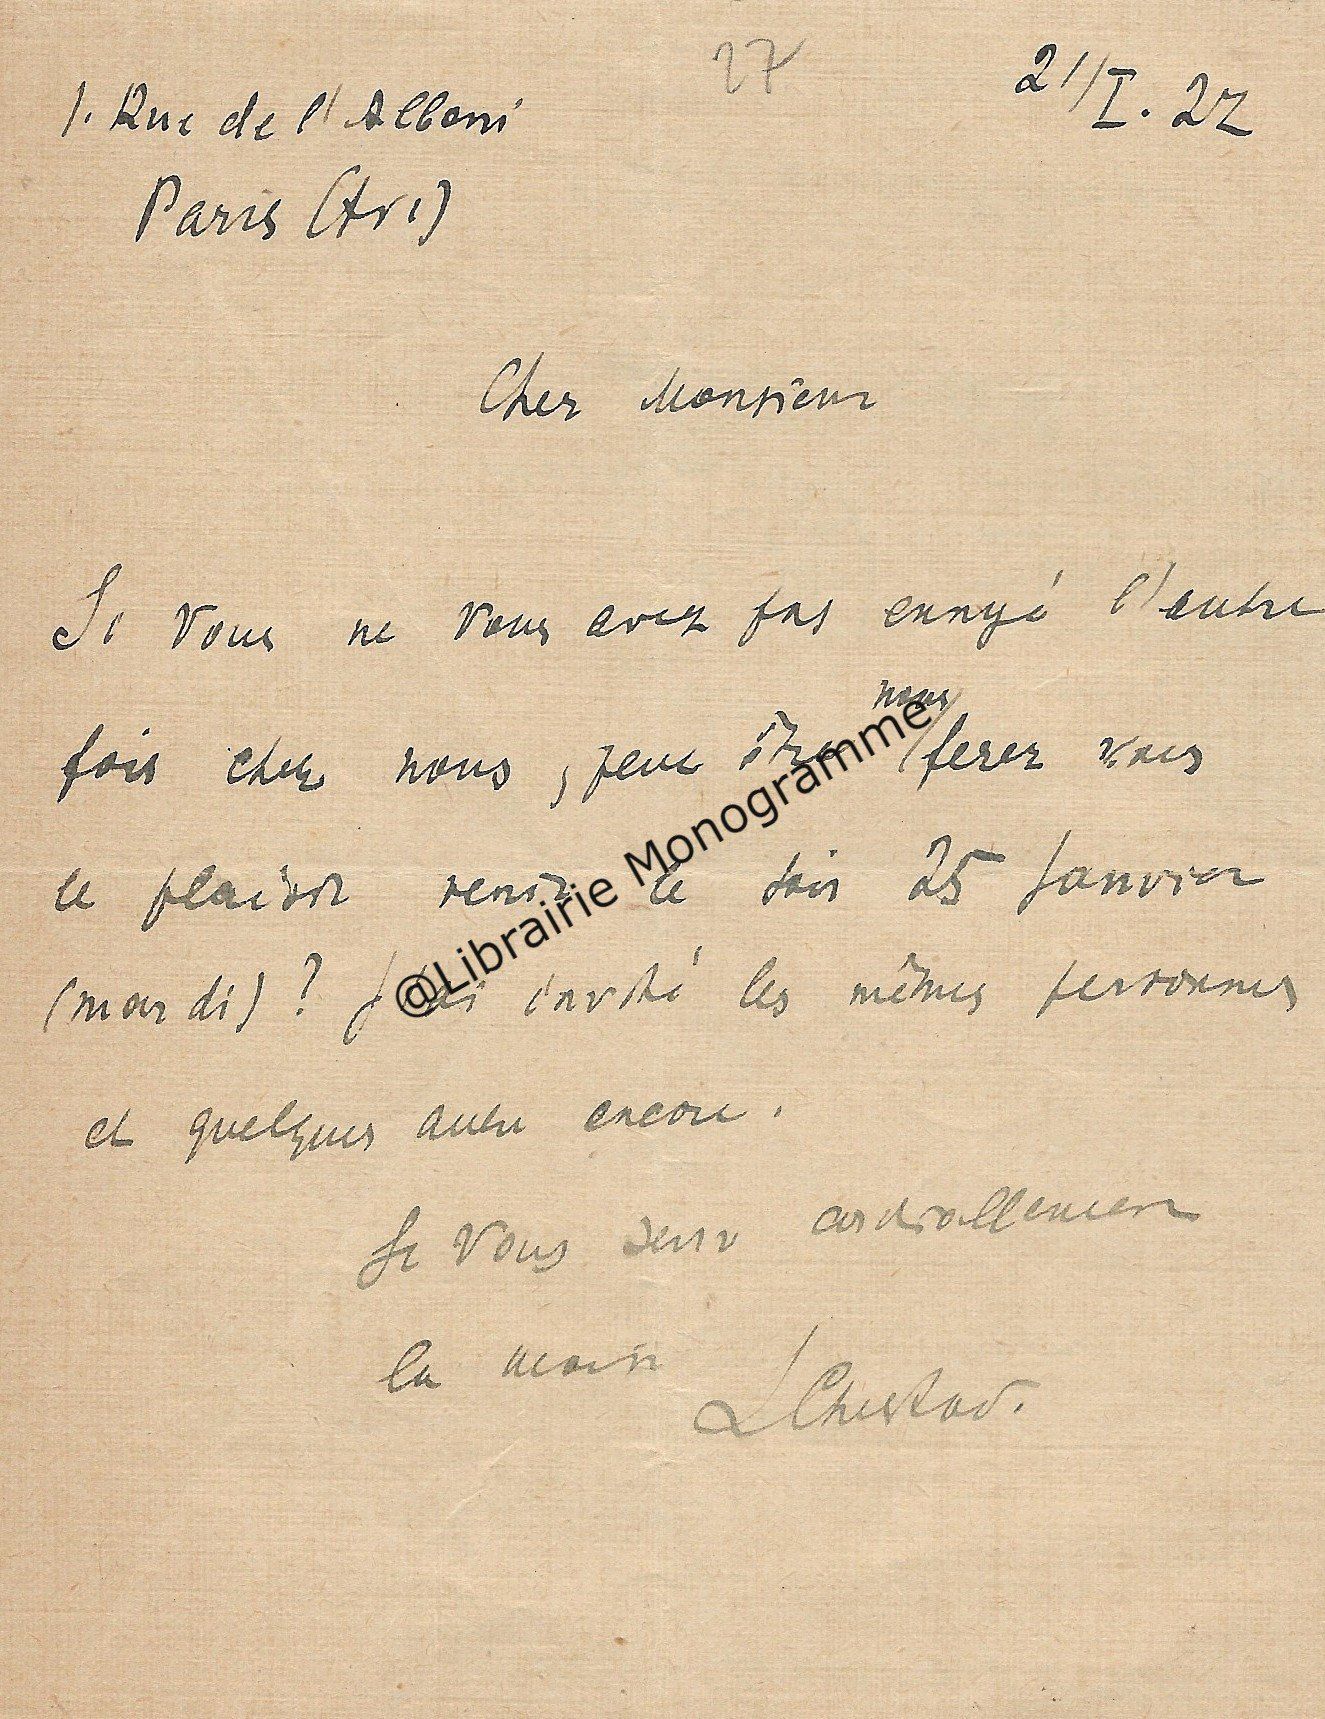 27
21/I. 27
1. Rue de l'Alboni
Paris (XVI)
Cher Monsieur
Si vous ne vous avez pas ennyé l'autre
fois chez nous, peut être nous ferez vous
le plaisir venir le soir 25 Janvier
(mardi)? J'ai invité les mêmes personnes
et quelques autre encore.
Je vous serre cordiallement
la main LChestov.
@Librairie Monogramme